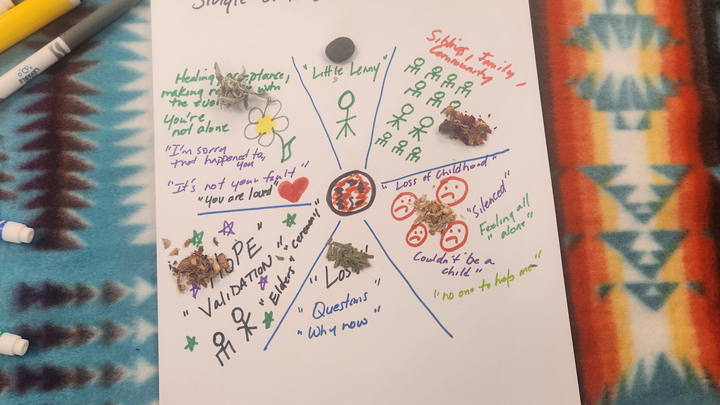 "Little Lenny"
Siblings, Family,
Community
"Loss of Childhood"
"Silenced"
Feeling all
"alone"
Couldn't be a
child"
"no one to help me"
"Questions"
"Why now"
HOPE"
"VALIDATION"
"Elders"
Healing, acceptance,
making
the
You're
not alone
"I'm sorry
that happened to
you
"It's not your fault"
"You are loved"